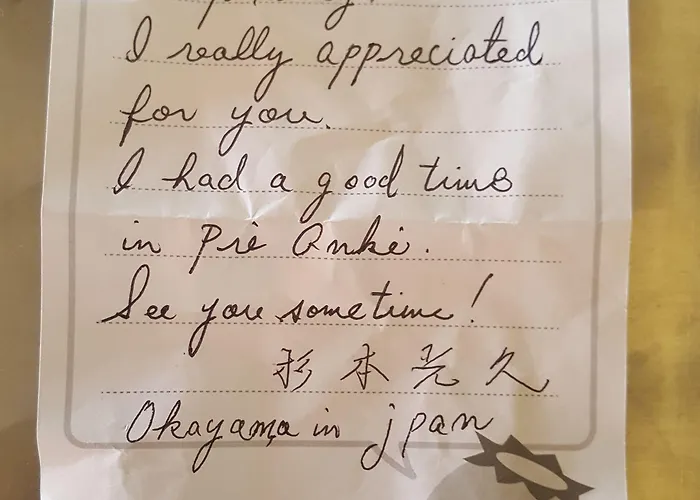 I really appreciated
for you.
I had a good time
in Prè Ankè.
See you sometime!
杉本光久
Okayama in jpan